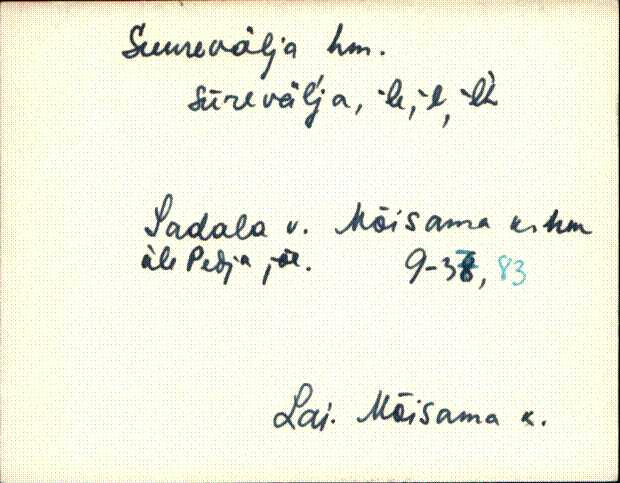 Suurevälja hm.
sūrevälja, -le, -l, -lt
Sadala v. Mõisama k. hm
üle Pedja jõe. 9-37, 83
Lai. Mõisama k.